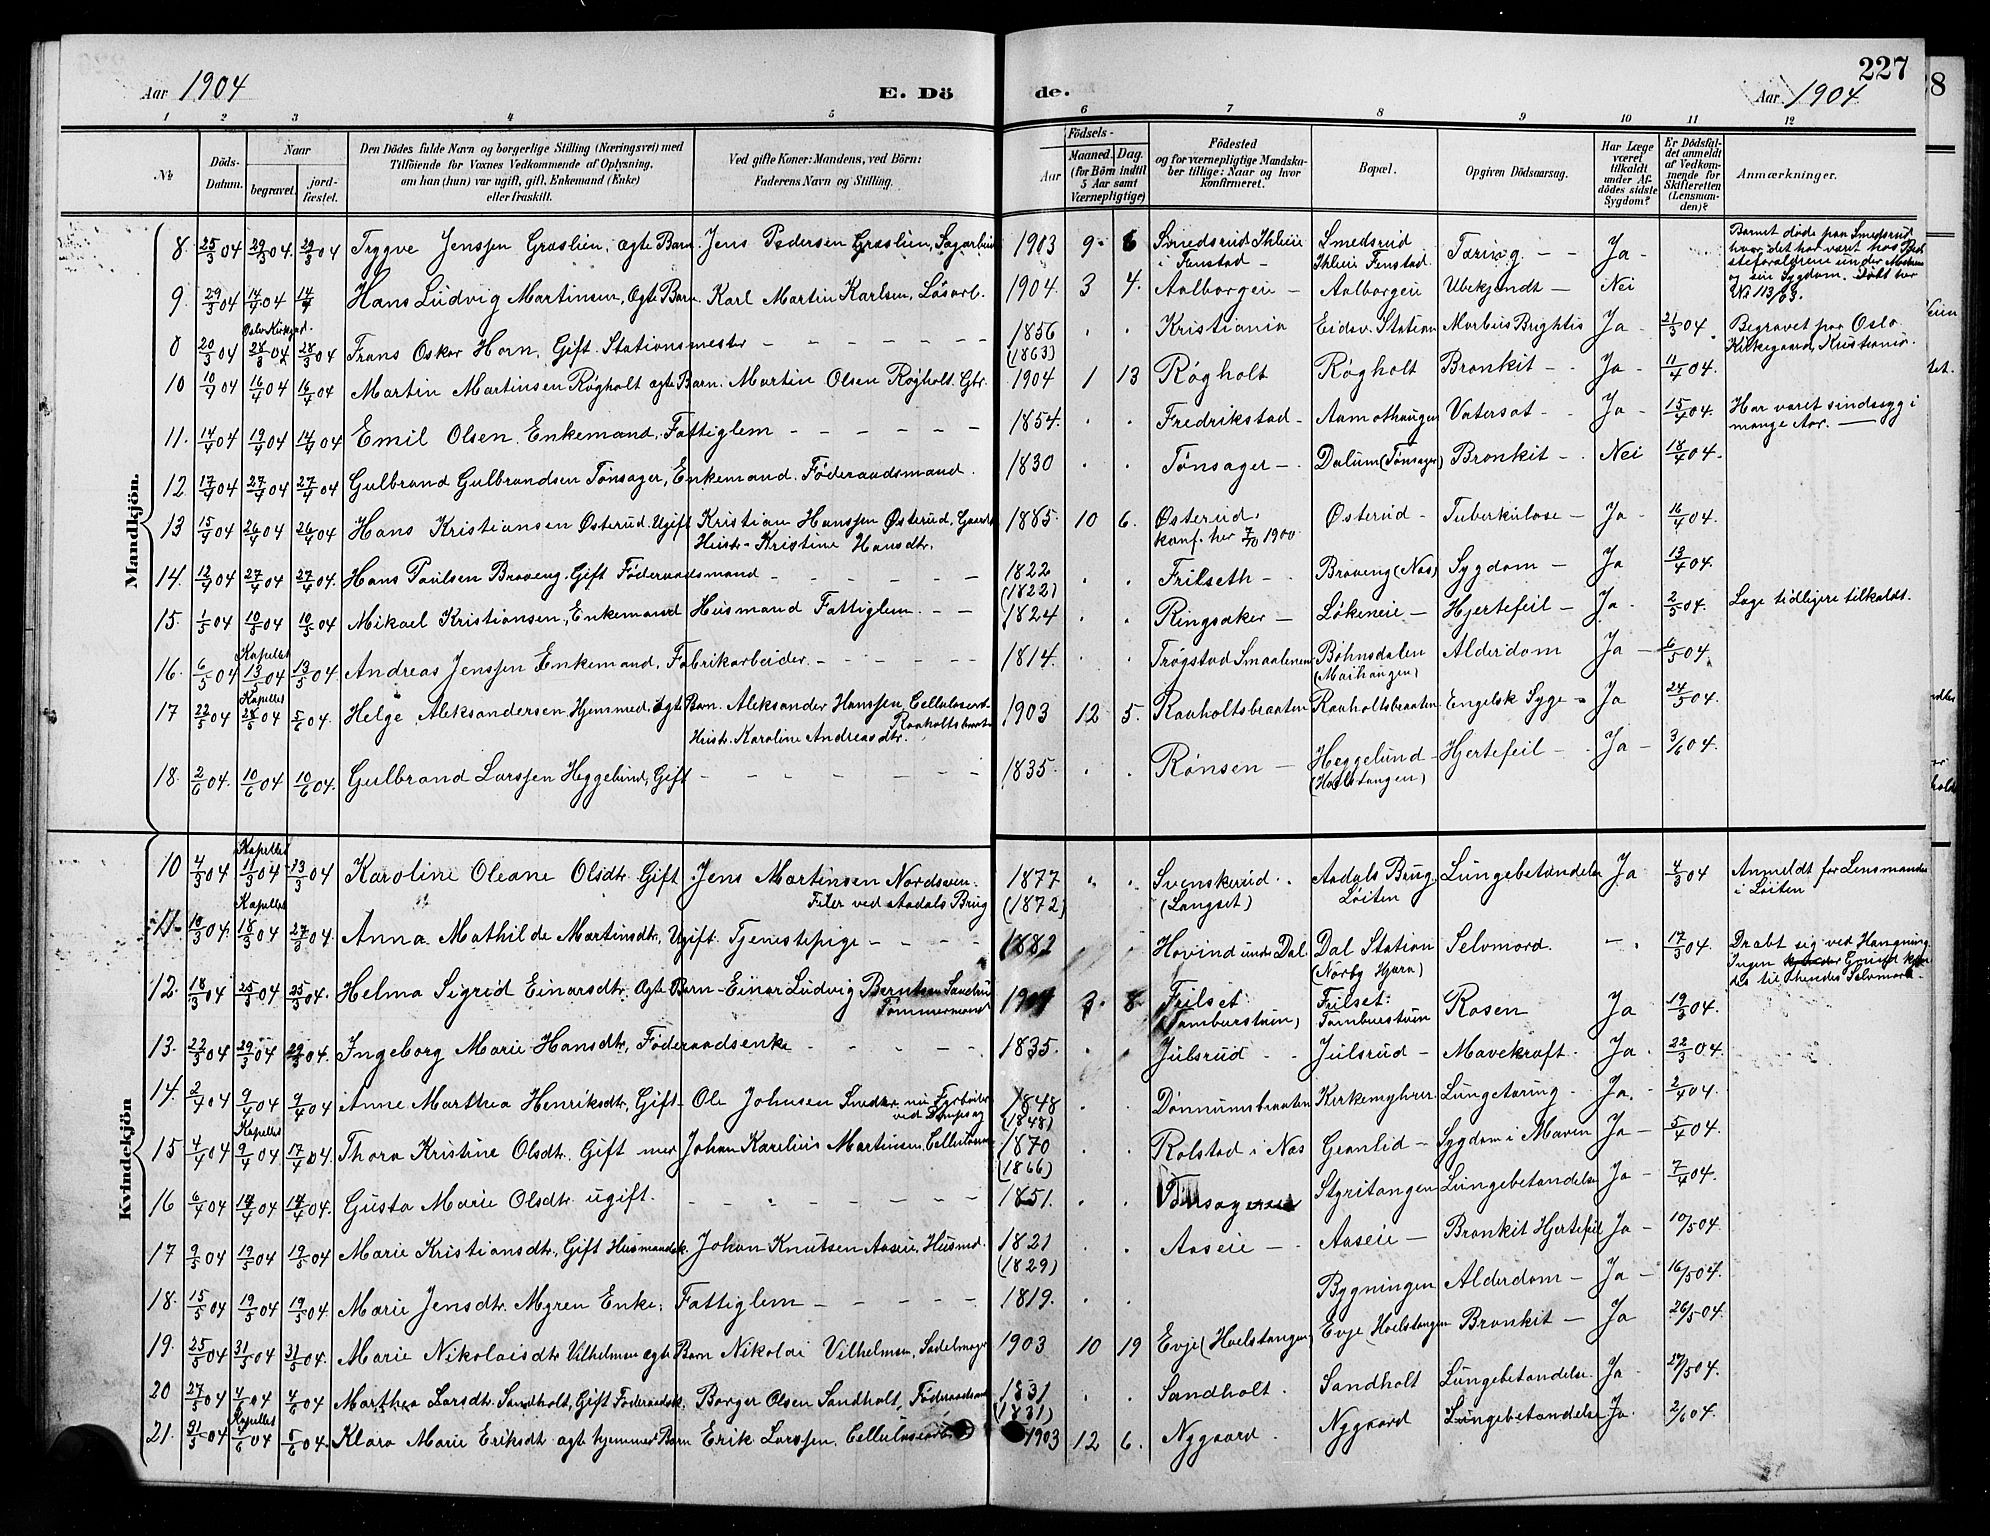 227
Aar 1904
E. Dö de.
Aar 1904
1 2 3 4 5 6 7 8 9 10 11 12
№
Döds-Datum.
Naar
begravet.
jord-fæstet.
Den Dödes fulde Navn og borgerlige Stilling (Næringsvei) med
Tilföiende for Voxnes Vedkommende af Oplysning,
om han (hun) var ugift, gift, Enkemand (Enke)
eller fraskilt.
Ved gifte Koner: Mandens, ved Börn:
Faderens Navn og Stilling.
Födsels-
Aar
Maaned. Dag.
(for Börn indtil
5 Aar samt
Værnepligtige)
Födested
og for værnepligtige Mandska-
ber tillige: Naar og hvor
konfirmeret.
Bopæl.
Opgiven Dödsaarsag.
Har Læge
været
tilkaldt
under Af-
dödes sidste
Sygdom?
Er Dödsfal-
det anmeldt
af Vedkom-
mende for
Skifteretten
(Lensman-
den)?
Anmærkninger.
Mandkjön.
8 25/3 04 29/3 04. 29/3 04 Tryggve Jenssen Græslien, ægte Barn. Jens Pedersen Græslien, 1903 9. 6 Smedsrud Ihleie i Fenstad – Smedsrud Ihleie Fenstad. Tæring – – Ja – Barnet døde paa Smedsrud hvor det har været hos Bedsteforældrene under og sin Sygdom. Døbt her № 113/03.
9. 29/3 04 14/4 04 14/4 Hans Ludvig Martinsen, Ægte Barn. Karl Martin Karlsen, Løsarb. 1904. 3 4. Aalborgeie – Aalborgeie Ubekjendt – Nei
8 20/3 04 Oslo Kirkegrd. 28/3 04 28/3 04 Frans Oskar Horn, Gift. Stationsmester – – – 1856 (1863) . . Kristiania Eidsv. Station Morbus Brightis Ja – 21/3 04. Begravet paa Oslo Kirkegaard, Kristiania.
10 10/4 04 16/4 04 16/4 04 Martin Martinsen Røgholt ægte Barn. Martin Olsen Røgholt. Gbr. 1904 1 13 Røgholt Røgholt Bronkit – . Ja . 11/4 04.
11. 14/4 04 19/4 04 14/4 04 Emil Olsen. Enkemand. Fattiglem – – – 1854. . . Fredrikstad – Aamothaugen Vatersot – . Ja – 15/4 04. Har været sindssyg i mange Aar. —
12 17/4 04 27/4 04 27/4 04 Gulbrand Gulbrandsen Tønsager, Enkemand. Føderaadsmand. 1830 . . Tønsager – . Dalum (Tønsager) Bronkit – . Nei 18/4 04.
13 15/4 04 26/4 04 26/4 04 Hans Kristiansen Østerud. Ugift Kristian Hanssen Østerud, Gaardbr. Hustr. Kristine Hansdtr. 1885. 10 6. Østerud. konf. her 7/10 1900. Østerud – Tuberkulose – Ja – 16/4 04.
14. 12/4 04 27/4 04 27/4 04. Hans Paulsen Braveng. Gift Føderaadsmand – – – 1822 (1822) . . Frilseth – . Braveng (Næs) Sygdom – Ja 13/4 04.
15. 1/5 04 10/5 04 10/5 04. Mikael Kristiansen, Enkemand Husmand Fattiglem. – – 1824 . . Ringsaker – Løkeneie – Hjertefeil – Ja – 2/5 04. Læge tidligere tilkaldt.
16. 6/5 04 Kapellet 13/5 04 13/5 04 Andreas Jenssen Enkemand, Fabrikarbeider. – – – 1814. . . Trøgstad Smaalenene Bøhnsdalen (Maihaugen) Alderdom Ja – 6/5 04.
17 22/5 04 Kapellet 28/5 04 5/6 04. Helge Aleksandersen, Hjemmed. ægte Barn. Aleksander Hanssen, Cellulosearb. Raaholtsbraaten Hustr. Karoline Andreasdtr. 1903 12 5. Raaholtsbraaten Raaholtsbraaten Engelsk Syge – Ja 24/5 04.
18. 2/6 04. 10/6 04 10/6 04. Gulbrand Larssen Heggelund, Gift – – – 1835. . . Rønsen – Heggelund – (Hoelstangen) Hjertefeil – . Ja – 3/6 04.
Kvindekjön
10 4/3 04 Kapellet 11/3 04 13/3 04 Karoline Oleane Olsdtr. Gift. Jens Martinsen Nordsveen. Filer ved Aadals Brug 1877 (1872) . . Svenskerud . (Langset) Aadals Brug. Løiten Lungebetændelse Ja 4/3 04 Anmeldt for Lensmanden i Løiten
11. 10/3 04. Kapellet 18/3 04 27/3 04. Anna Mathilde Martinsdtr, Ugift. Tjenestepige – – – 1882 . Hovind under Dal Dal Station (Nørby Hjørn) Selvmord. – . 17/3 04. Dræbt sig ved Hængning. Ingen Grund kjendes til hendes Selvmord.
12. 18/3 04 25/3 04 25/3 04. Helma Sigrid Einarsdtr. Ægte Barn – Einar Ludvig Berntsen Tømmermand 8 Frilset (Tamburstuen) Frilset: Tamburstuen Rosen Ja 19/3 04.
13. 22/3 04 29/3 04 29/3 04. Ingeborg Marie Hansdtr, Føderaadsenke – – – 1835. . . Julsrud . . Julsrud – Mavekræft . Ja . 22/3 04.
14. 2/4 04 9/4 04 9/4 04 Anne Marthea Henriksdtr, Gift – Ole Johnsen Snedker, nu Fyrbøder ved Dampsag 1848 (1848) . . Dønnumsbraaten Kirkemyhren Lungetæring – Ja. 2/4 04.
15 4/4 04 Kapellet 9/4 04 17/4 04. Thora Kristine Olsdtr. Gift med Johan Karelius Martinsen, 1870 (1866) . . Rolstad i Næs Granlid – Sygdom i Maven Ja – 5/4 04.
16 6/4 04 14/4 04 14/4 04. Gusta Marie Olsdtr. ugift. – – – 1851. . . Styritangen Lungebetændelse Ja – 7/4 04.
17 9/5 04 19/5 04 19/5 04 Marie Kristiansdtr, Gift Husmandsk. Johan Knutsen Aaseie, Husmd. 1821 (1829) . . Aaseie – . Aaseie – Bronkit Hjertefeil Ja – 10/5 04.
18. 15/5 04 19/5 04 19/5 04. Marie Jensdtr. Myren Enke. Fattiglem – – – 1819. . . Bygningen Alderdom – Ja – 16/5 04.
19. 25/5 04 31/5 04 31/5 04. Marie Nikolaisdtr Vilhelmsen ægte Barn Nikolai Vilhelmsen, Sadelmager 1903 10 19 Evje (Hoelstangen) Evje Hoelstangen Bronkit – Ja 26/5 04.
20 27/5 04 4/6 04 4/6 04 Marthea Larsdtr. Sandholt, Gift Føderaadsk. Borger Olsen Sandholt, Føderaadsmd 1831 (1831) . . Sandholt . Sandholt Lungebetændelse. Ja – 27/5 04.
21. 31/5 04 Kapellet 4/6 04 5/6 04. Klara Marie Eriksdtr. ægte hjemmed Barn Erik Larssen, Cellulosearb. 1903 12 6. Nygaard . Nygaard Lungebetændelse Ja. 2/6 04.